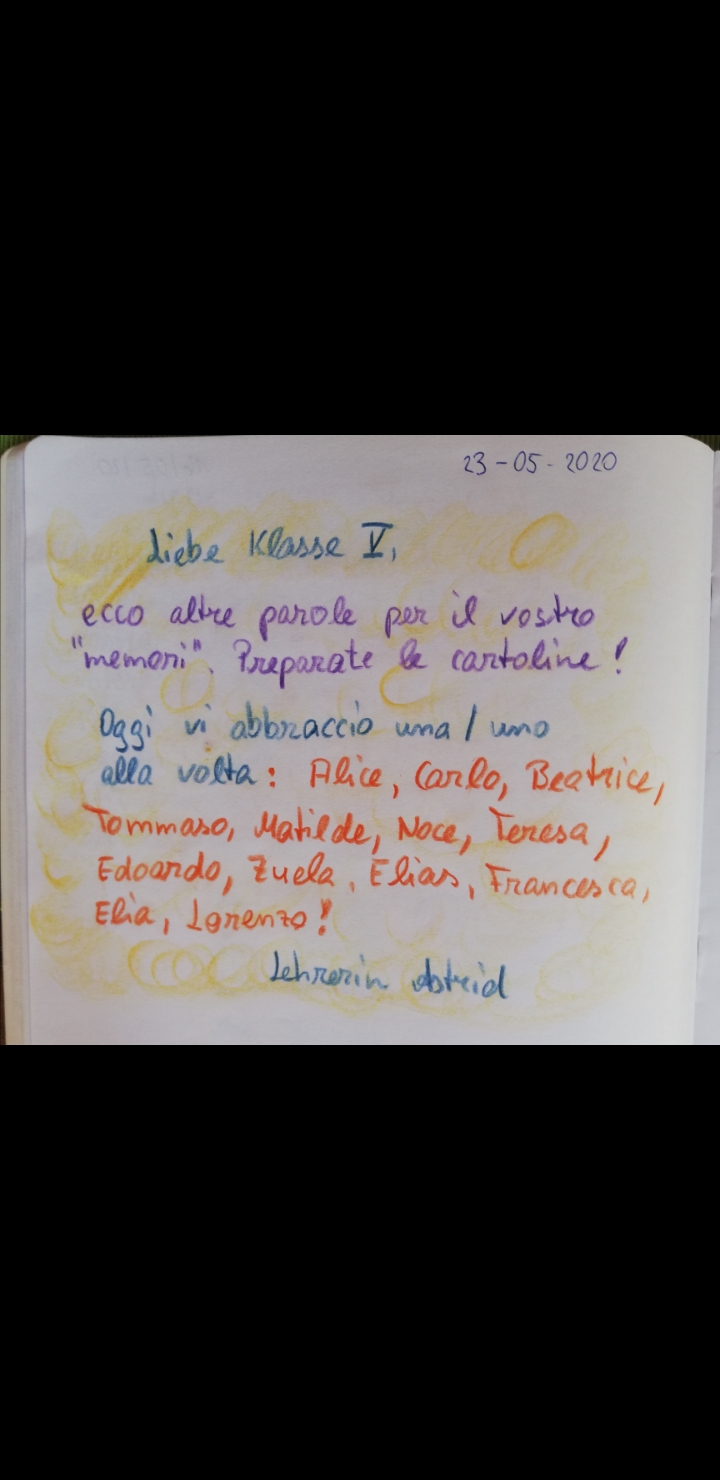 23-05-2020
Liebe Klasse V,
ecco altre parole per il vostro
"memori". Preparate le cartoline!
Oggi vi abbraccio una/uno
alla volta: Alice, Carlo, Beatrice,
Tommaso, Matilde, Noce, Teresa,
Edoardo, Zuela, Elias, Francesca,
Elia, Lorenzo!
Lehrerin Astrid